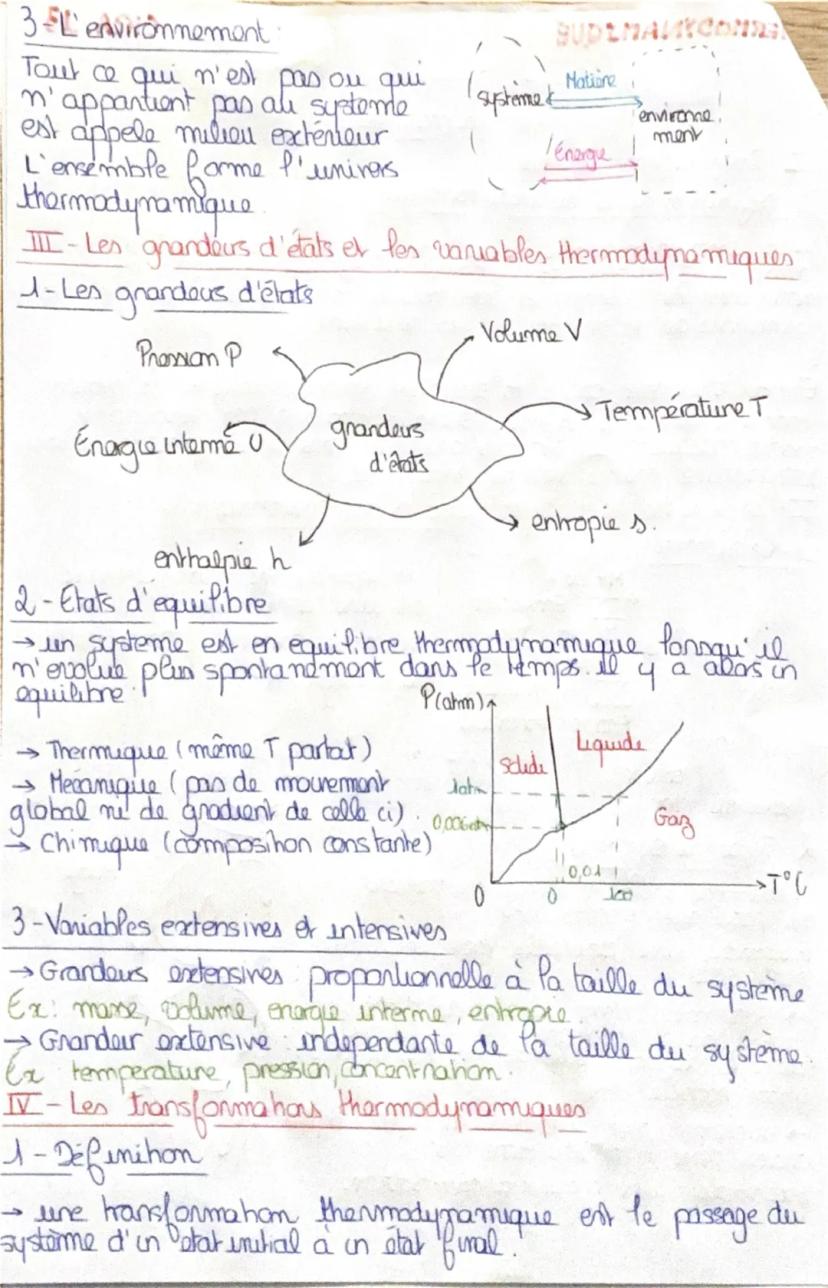 3-L'environnement:
Tout ce qui n'est pas ou qui
n'appartient pas au systeme
est appele milieu extérieur
L'ensemble forme l'univers
thermodynamique
système
Matière
environne
ment
Énergie
III-Les grandeurs d'états et les variables thermodynamiques
1-Les grandeurs d'états
Pression P
Volume V
Température T
Énergie interne U
grandeurs
d'états
entropie s.
enthalpie h
2-Etats d'equilibre
→ un systeme est en equilibre thermodynamique lorsqu'il
n'evolue plus spontanement dans le temps. il y a alors un
equilibre:
P(atm)
→ Thermique (même T partout)
→ Mécanique (pas de mouvement
global ni de gradient de celle ci).
→ Chimique (composition constante)
solide
Liquide
Gaz
1atm
0,006atm
0,01
0
0
100
T°C
3-Variables extensives et intensives
→ Grandeurs extensives: proportionnelle à la taille du système
Ex: masse, volume, energie interne, entropie.
→ Grandeur extensive: independante de la taille du système.
Ex temperature, pression, concentration.
IV-Les transformations thermodynamiques
1-Définition
→ une transformation thermodynamique est le passage du
système d'un etat initial à un état final.